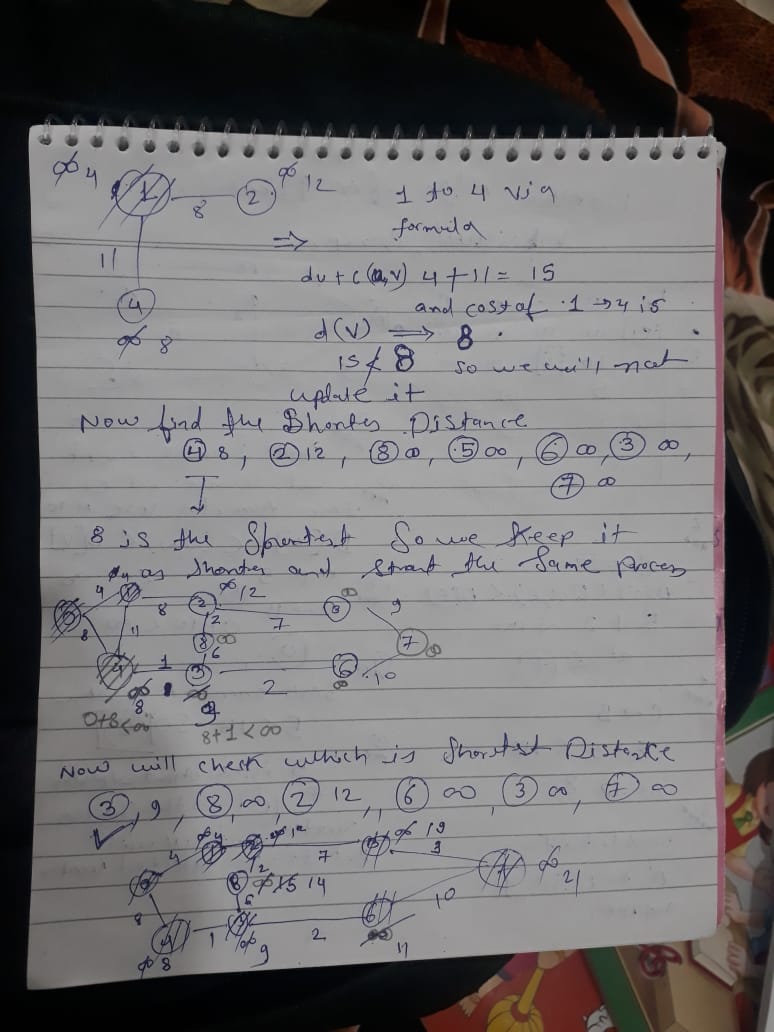 ∞ 4 1 8 2 ∞ 12 1 to 4 via
formula
11 ⇒
du + c(u,v) 4+11 = 15
4 and cost of 1→4 is
∞ 8 d(v) ⟹ 8.
is ≮ 8 so we will not
update it
Now find the Shortes Distance
④ 8, ② 12, ⑧ ∞, ⑤ ∞, ⑥ ∞, ③ ∞,
⑦ ∞
8 is the Shortest So we keep it
as shorter and strat the Same process
4 1 8 2 ∞ 12 7 8 ∞ 9
8 11 2 8 ∞ 7 ∞
4 1 6 3 2 6 ∞ 10
∞ 8 ∞ 9
0+8<∞ 8+1<∞
Now will check which is Shortest Distance
③, 9, ⑧, ∞, ② 12, ⑥ ∞, ③ ∞, ⑦ ∞
∞ 4 ∞ 12 ∞ 19
4 1 2 7 3
2 7 ∞ 21
8 ∞ 15 14 10
8 6 6
4 1 2 ∞
∞ 8 ∞ 9 11